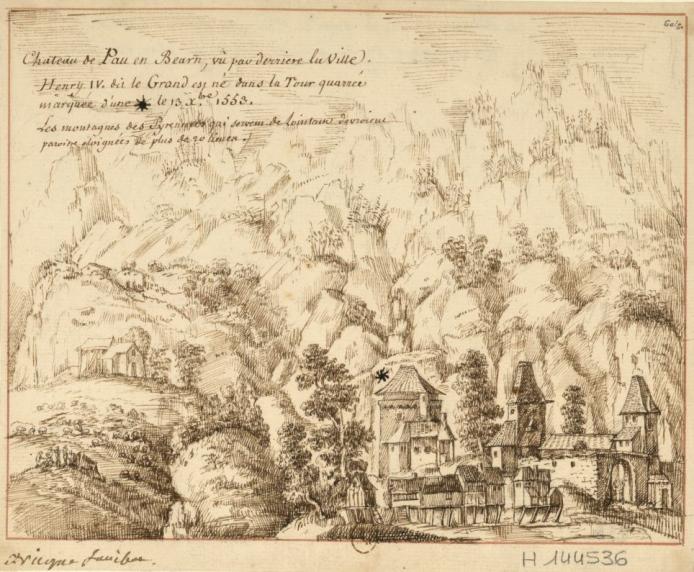 Galz.
Chateau de Pau en Bearn, vû par derriere la Ville.
Henry IV. dit le Grand est né dans la Tour quarrée
marquée d'une * le 13 X.bre 1553.
Les montagnes des Pyrennées qui servent de lointain devroient
paroitre eloignées de plus de 20 lieües.
H 144536